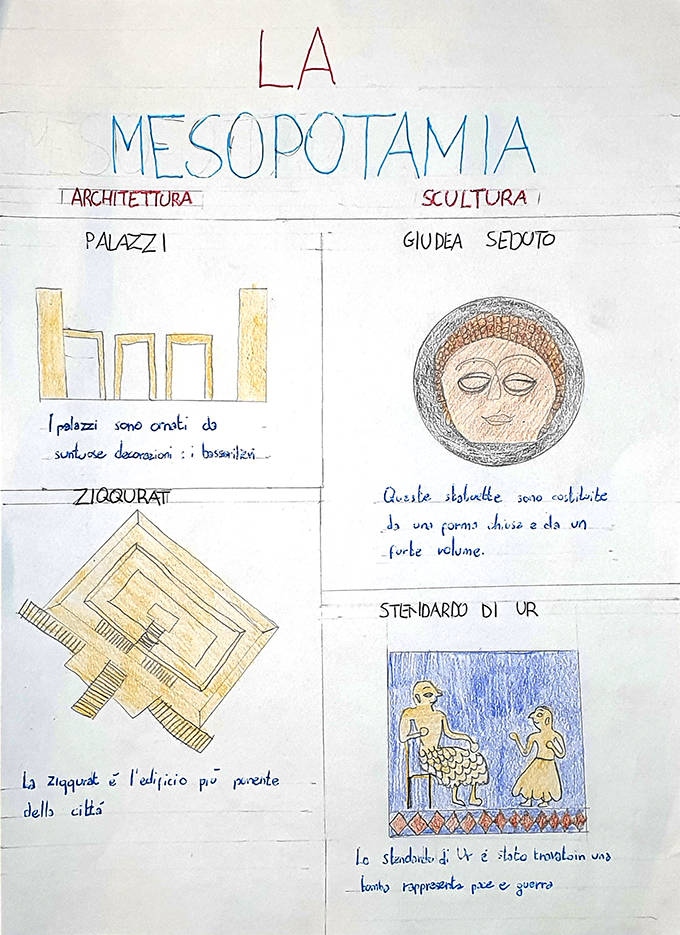 LA
MESOPOTAMIA
ARCHITETTURA
SCULTURA
PALAZZI
I palazzi sono ornati da
suntuose decorazioni : i bassorilievi
ZIQQURAT
La ziqqurat é l'edificio piú
della cittá
GIUDEA SEDUTO
Queste statuette sono costituite
da una forma chiusa e da un
forte volume.
STENDARDO DI UR
Lo stendardo di Ur é stato trovato in una
tomba rappresenta pace e guerra